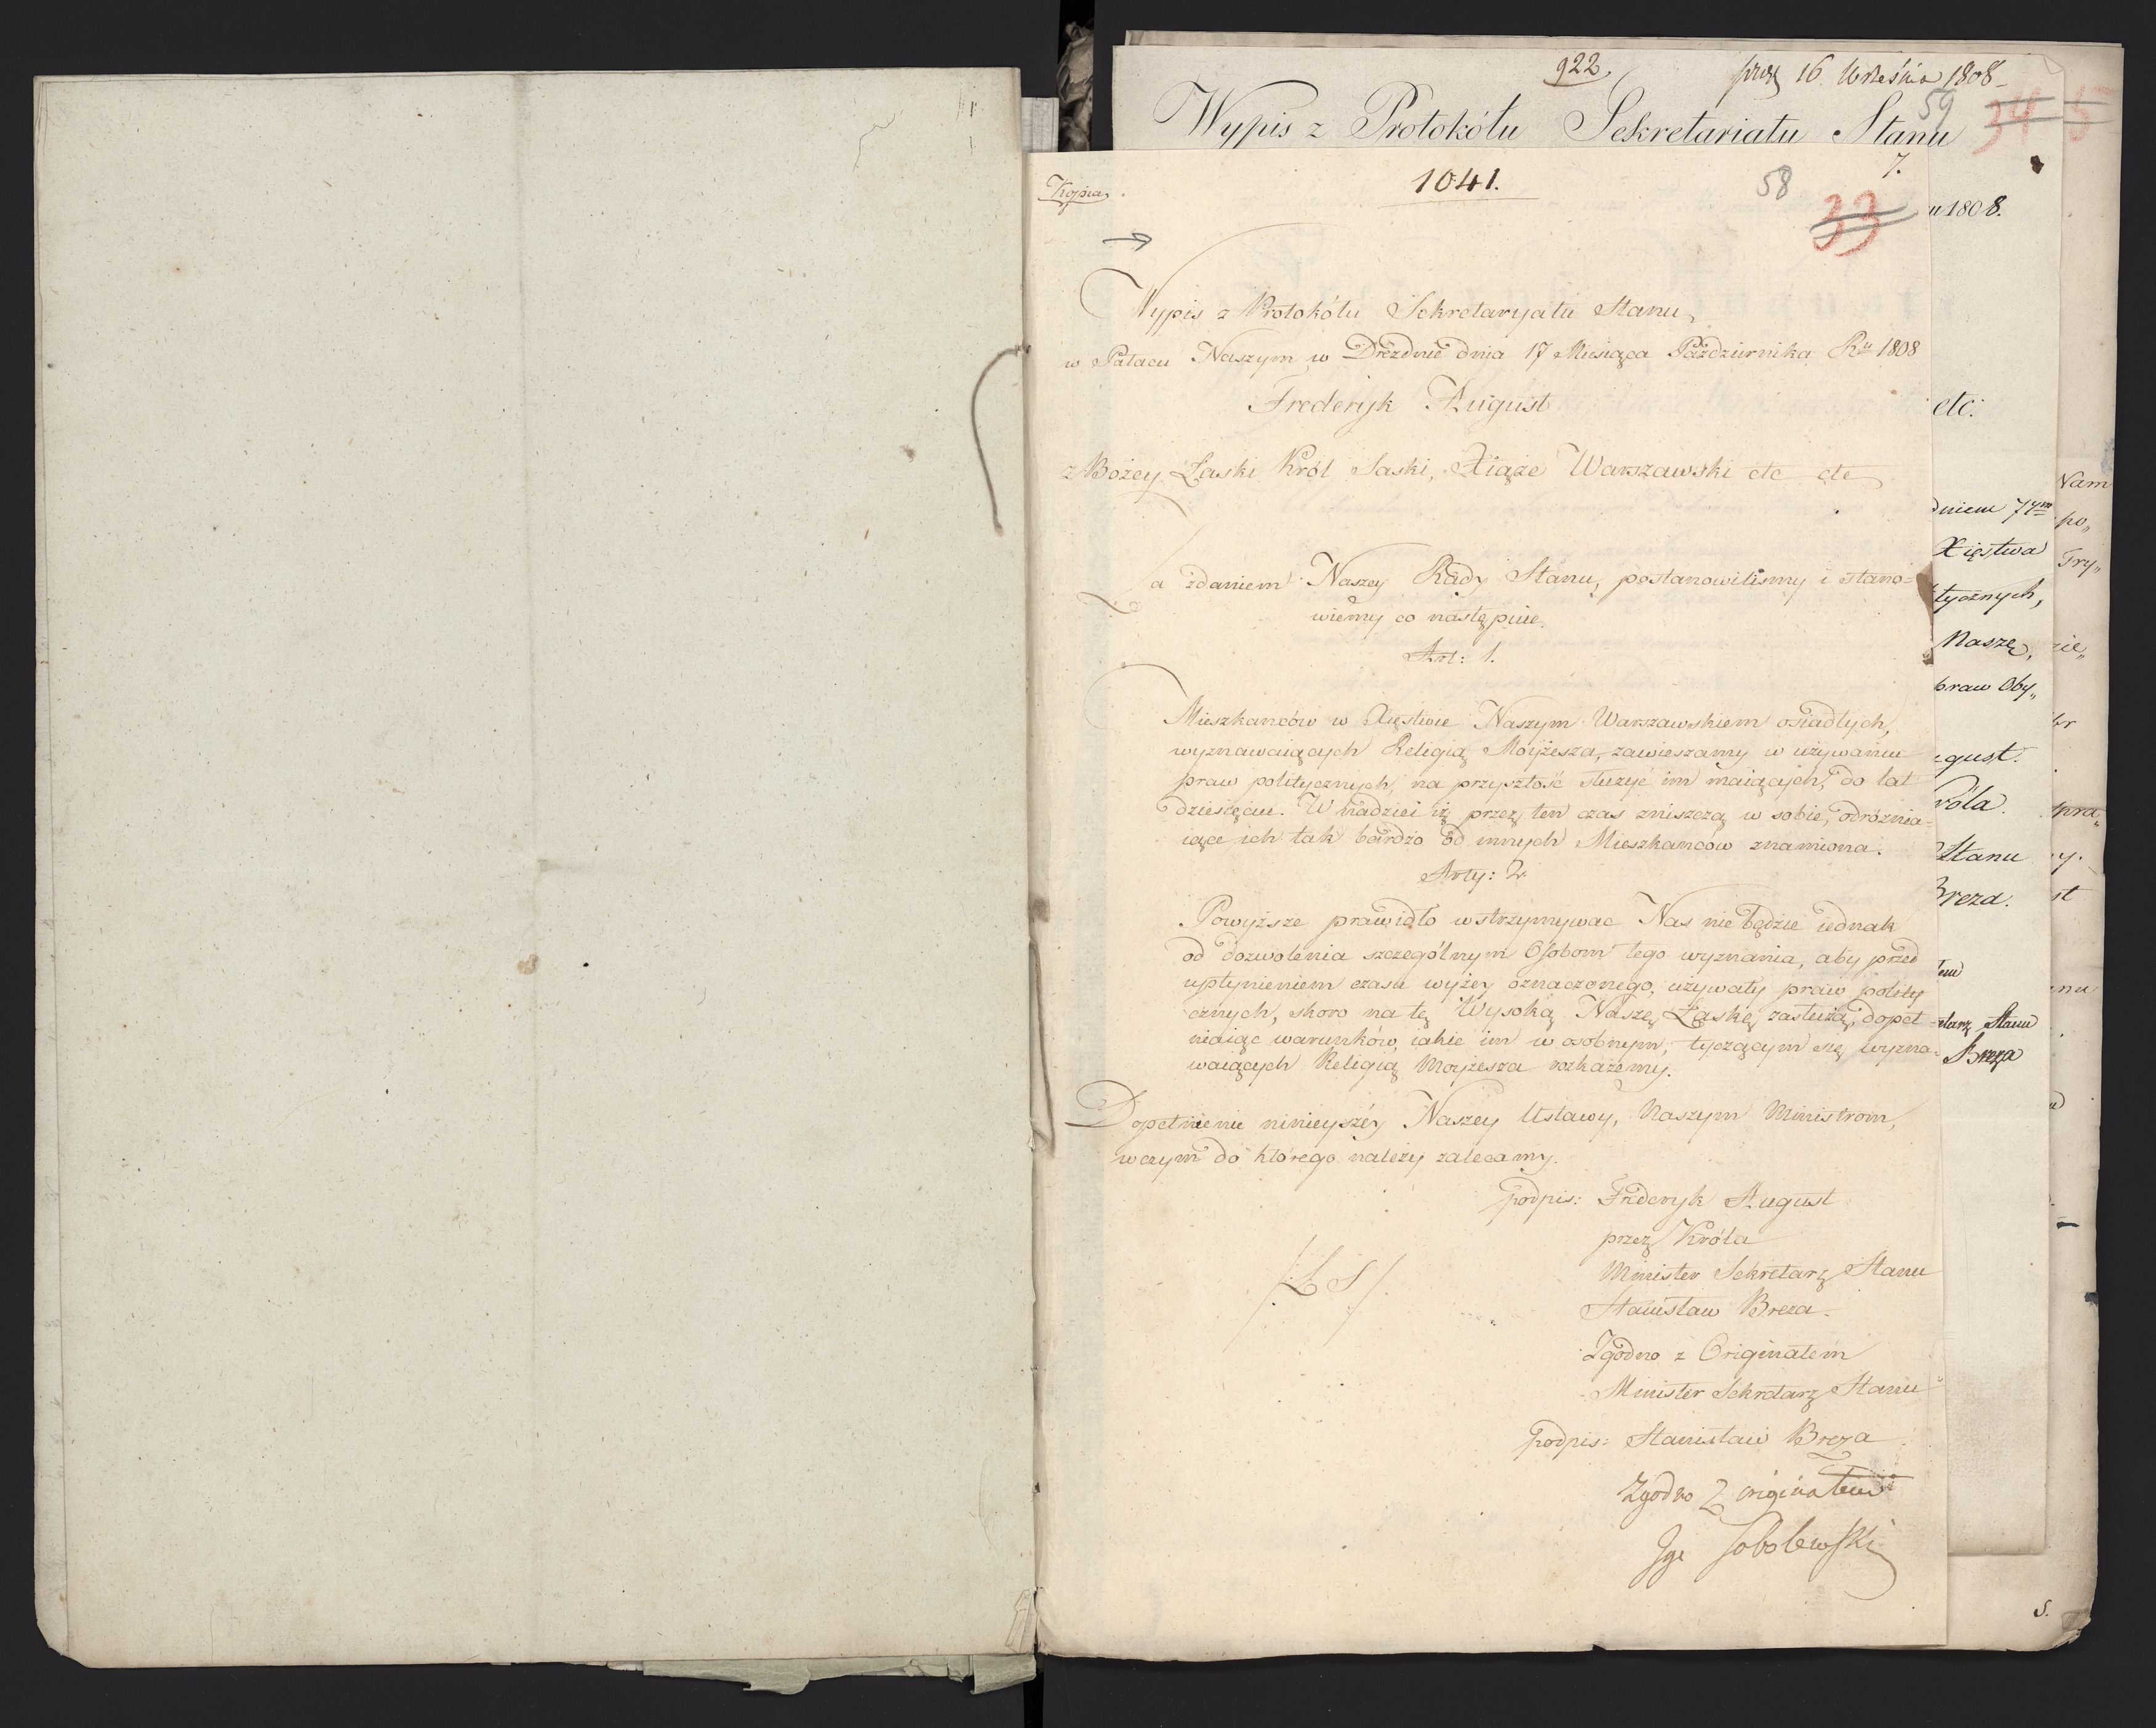 922.
prez 16 Września 1808
59
34
5
Wypis z Protokółu Sekretariatu Stanu
Kopia
1041.
58
7.
33
u 1808.
Wypis z Protokółu Sekretaryatu Stanu,
w Pałacu Naszym w Dreźdnie dnia 17 Miesiąca Października Ru 1808
Frederyk August
etc:
z Bożey Łaski Król Saski, Xiąże Warszawski etc etc
Nam
dniem 7ym
po„
Xięstwa
Try„
Za zdaniem Naszey Rady Stanu, postanowiliśmy i stano=
tycznych,
wiemy co następuie.
Naszę,
zie„
Art: 1.
praw Oby„
Mieszkańców w Xięstwie Naszym Warszawskiem osiadłych,
wyznawaiących Religią Moyżesza, zawieszamy w używaniu
gust.
praw politycznych, na przyszłość służyć im maiących, do lat
dziesięciu. W nadziei iż przez ten czas zniszczą w sobie, odróżnia=
róla.
pra„
iące ich tak bardzo od innych Mieszkańców znamiona.
Stanu
Arty: 2
Breza.
st
Powyższe prawidło wstrzymywac Nas nie będzie iednak
od dozwolenia szczególnym Osobom tego wyznania, aby przed
upłynieniem czasu wyżey oznaczonego, używały praw polity
cznych, skoro na tę Wysoką Naszę Łaskę zasłużą, dopeł
niaiąc warunków, iakie im w osobnym, tyczącym się wyzna=
waiących Religią Moyżesza rozkażemy.
etarz Stanu
Breza
nu
Dopełnienie ninieyszéy Naszey Ustawy, Naszym Ministrom,
w czym do którego należy zalecamy.
podpis: Frideryk August
przez Króla
Minister Sekretarz Stanu
/L S/
Stanisław Breza.
Zgodno z Originałem
Minister Sekretarz Stanu
podpis: Stanisław Breza
Zgodno z originałem
Ign Sobolewski
S.